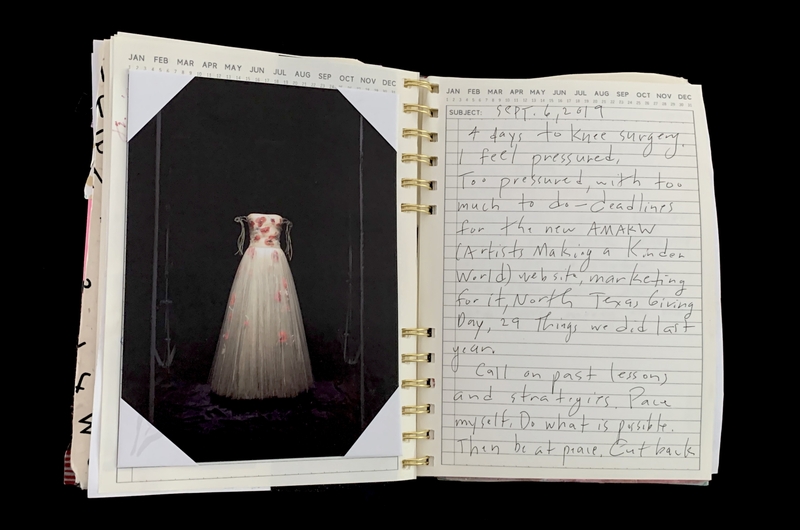 JAN FEB MAR APR MAY JUN JUL AUG SEP OCT NOV DEC
JAN FEB MAR APR MAY JUN JUL AUG SEP OCT NOV DEC
1 2 3 4 5 6 7 8 9 10 11 12 13 14 15 16 17 18 19 20 21 22 23 24 25 26 27 28 29 30 31
SUBJECT: SEPT. 6, 2019
4 days to knee surgery.
I feel pressured,
Too pressured, with too
much to do - deadlines
for the new AMAKW
(Artists Making a Kinder
World) website, marketing
for it, North Texas Giving
Day, 29 Things we did last
year.
Call on past lessons
and strategies. Pace
myself. Do what is possible.
Then be at peace. Cut back